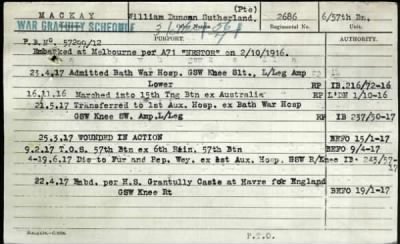 (Pte)
MACKAY William Duncan Sutherland. 2686 6/57th Bn.
WAR GRATUITY SCHEDULE
PURPORT AUTHORITY.
P.B.No. 57299/12
Embarked at Melbourne per A71 "NESTOR" on 2/10/1916.
23.4.17 Admitted Bath War Hosp. GSW Knee Slt., L/Leg Amp
Lower RP IB.216/72-16
16.11.16 Marched into 15th Tng Btn ex Australia RP L'DN 1/10-16
21.5.17 Transferred to 1st Aux. Hosp. ex Bath War Hosp
GSW Knee SW. Amp.L/Leg RP IB 237/50-17
25.3.17 WOUNDED IN ACTION BEFO 15/1-17
9.2.17 T.O.S. 57th Btn ex 6th Rein. 57th Btn BEFO 9/4-17
4-19.6.17 Dis to Fur and Rep. Wey. ex 1st Aux. Hosp. GSW R/Knee IB. 243/57-17
22.4.17 Embd. per H.S. Grantully Caste at Havre for England
GSW Knee Rt BEFO 19/1-17
P.T.O.